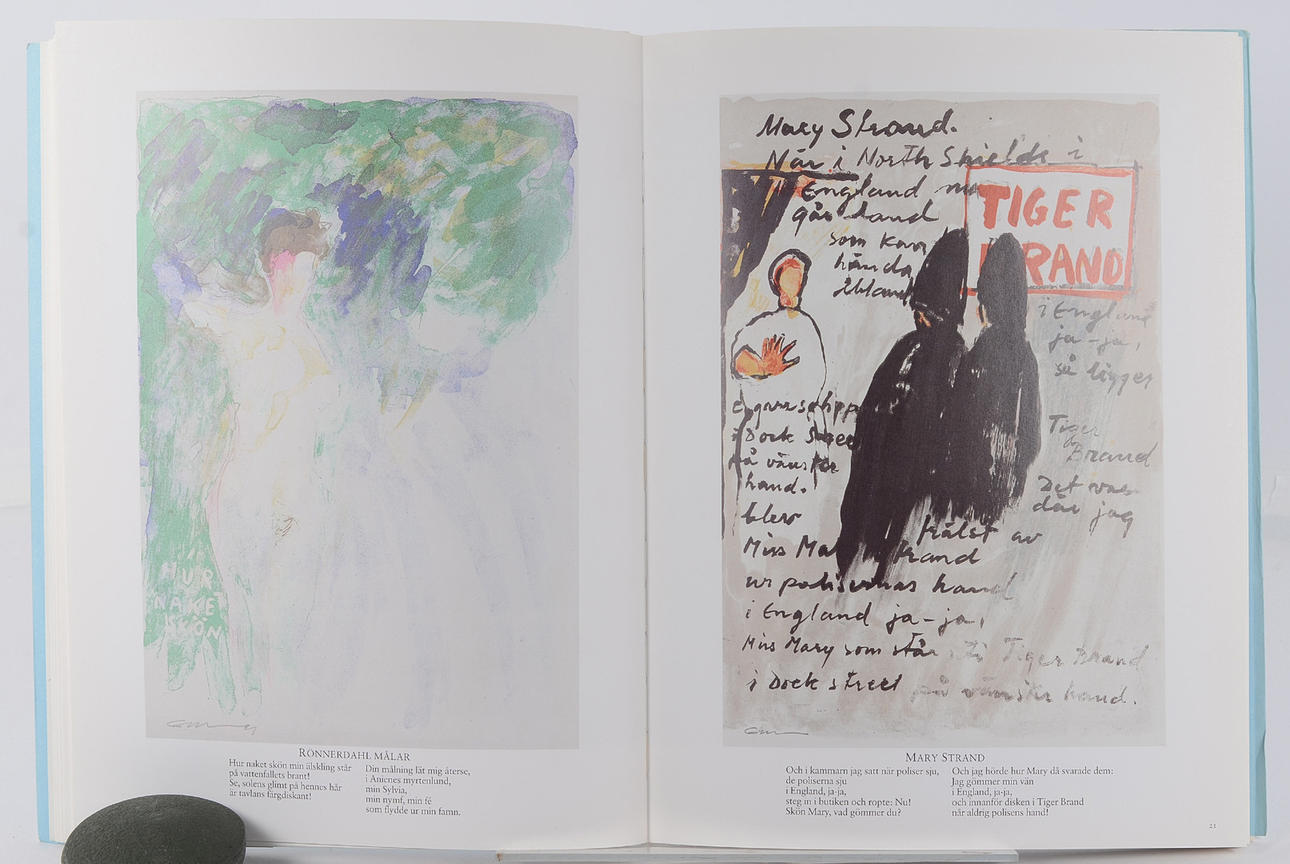 HUR
NAKET
SKÖN
RÖNNERDAHL MÅLAR
Hur naket skön min älskling står
på vattenfallets brant!
Se, solens glimt på hennes hår
är tavlans färgdiskant!
Din målning låt mig återse,
i Anicnes myrtenlund,
min Sylvia,
min nymf, min fé
som flydde ur min famn.
Mary Strand.
När i North Shields i
England man
går i land
som kan
hända
ibland
TIGER
BRAND
i England
ja-ja,
så ligger
Tiger
Brand
i Dock Street
på vänster
hand.
Det var
där jag
blev
frälst av
Miss Mary Strand
ur polisernas hand
i England ja-ja,
Miss Mary som står i Tiger Brand
i Dock street på vänster hand.
MARY STRAND
Och i kammarn jag satt när poliser sju,
de poliserna sju
i England, ja-ja,
steg in i butiken och ropte: Nu!
Skön Mary, vad gömmer du?
Och jag hörde hur Mary då svarade dem:
Jag gömmer min vän
i England, ja-ja,
och innanför disken i Tiger Brand
når aldrig polisens hand!
21